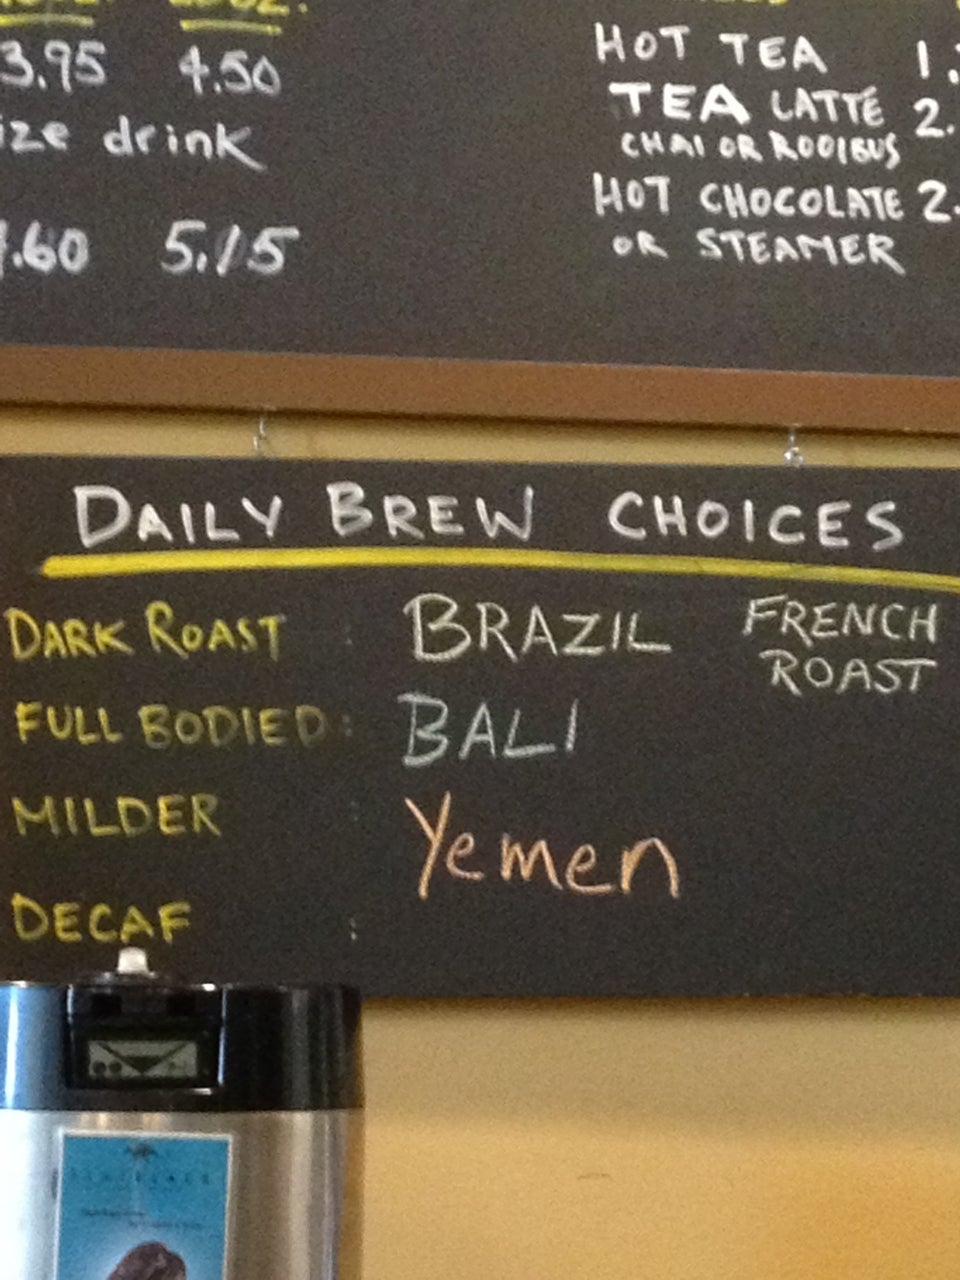 3.95 4.50
ize drink
.60 5.15
HOT TEA 1.
TEA LATTE 2.
CHAI OR ROOIBUS
HOT CHOCOLATE 2.
OR STEAMER
DAILY BREW CHOICES
DARK ROAST : BRAZIL FRENCH ROAST
FULL BODIED: BALI
MILDER Yemen
DECAF :